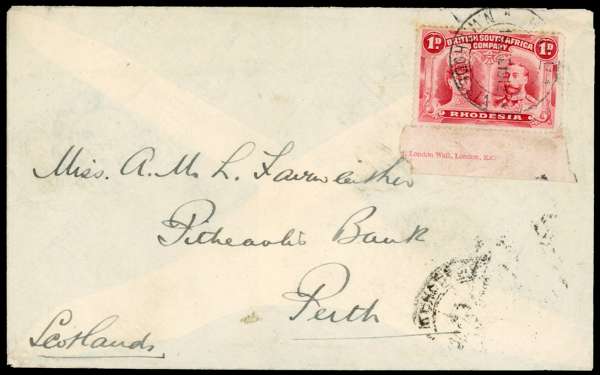 1D BRITISH SOUTH AFRICA 1D
COMPANY
RHODESIA
London Wall, London, E.C.
Miss. A. M. L. Fairweather
Bank
Perth
Scotland